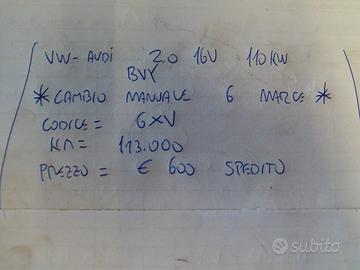 VW-AUDI 2.0 16V 110KW
BVY
* CAMBIO MANUALE 6 MARCE *
CODICE = GXV
KM = 113.000
PREZZO = € 600 SPEDITO
subito